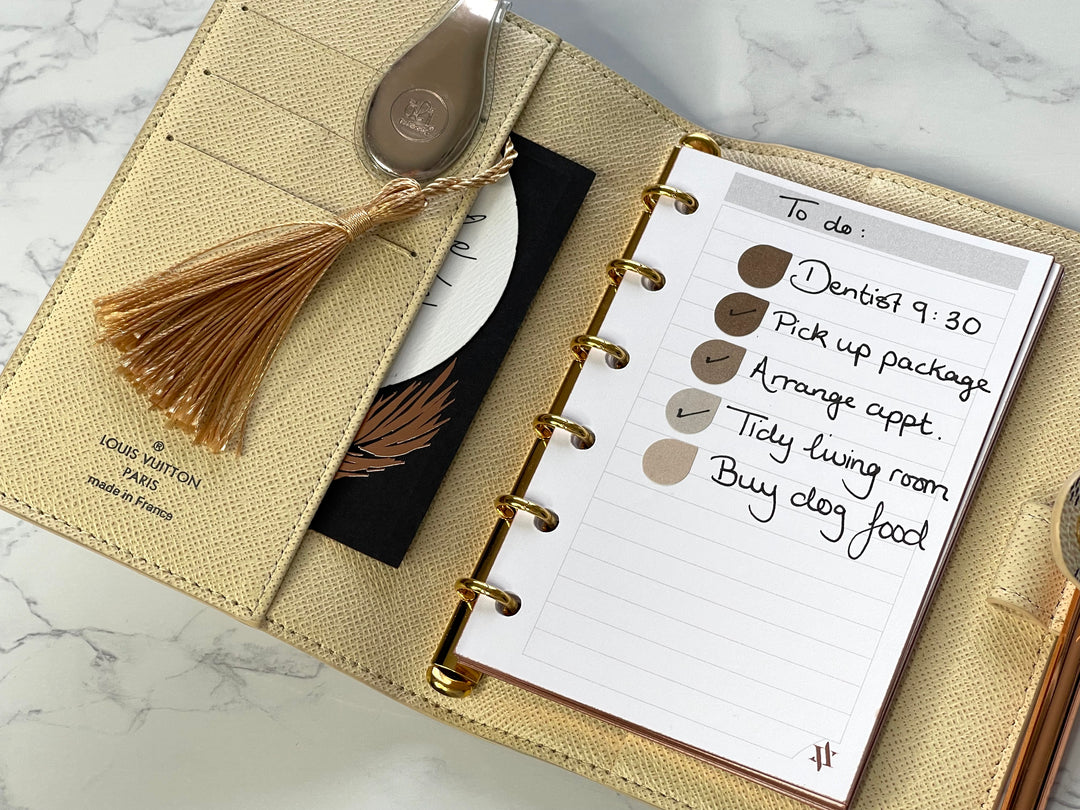 LOUIS VUITTON
PARIS
made in France
To do:
Dentist 9:30
Pick up package
Arrange appt.
Tidy living room
Buy dog food